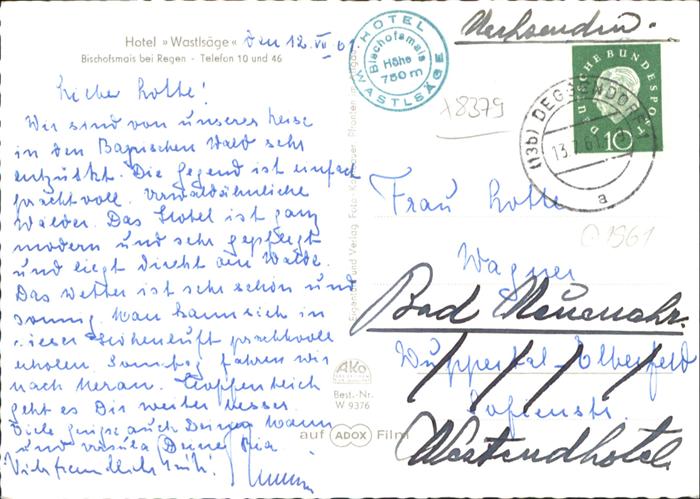 Hotel »Wastlsäge«
Bischofsmais bei Regen - Telefon 10 und 46
den 12. VII 61
Liebe Lotte!
Wir sind von unserer Reise
in den Bayrischen Wald sehr
entzückt. Die Gegend ist einfach
prachtvoll. Urwaldähnliche
Wälder. Das Hotel ist ganz
modern und sehr gepflegt
und liegt direkt am Walde.
Das Wetter ist sehr schön und
sonnig. Man kann sich in
dieser Höhenluft prachtvoll
erholen. Sonntag fahren wir
nach Meran. Hoffentlich
geht es Dir weiter besser.
Viele Grüsse auch Deinem Mann
und Ursula
HOTEL
Bischofsmais
Höhe
750 m
WASTLSÄGE
Nachsenden.
λ8379
DEUTSCHE BUNDESPOST
10
(13b) DEGGENDORF
13.7.61
a
©1961
Frau Lotte
Wagner
Bad Neuenahr.
Wuppertal-Elberfeld
Sofienstr.
Westendhotel
Eigentum und Verlag Foto
AKO
Best.-Nr.
W 9376
auf ADOX Film